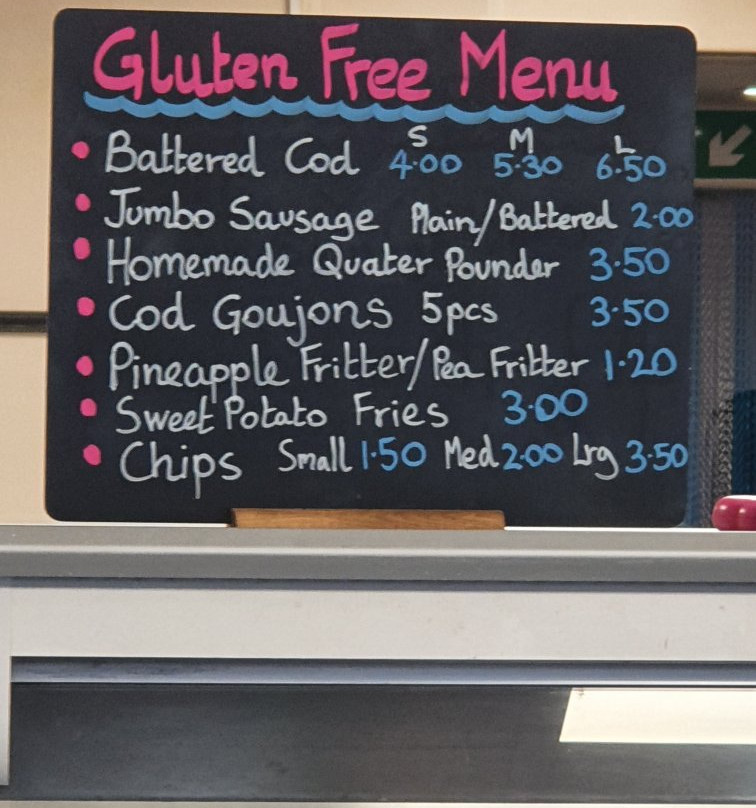 Gluten Free Menu
S M L
• Battered Cod 4.00 5.30 6.50
• Jumbo Sausage Plain/Battered 2.00
• Homemade Quater Pounder 3.50
• Cod Goujons 5pcs 3.50
• Pineapple Fritter/Pea Fritter 1.20
• Sweet Potato Fries 3.00
• Chips Small 1.50 Med 2.00 Lrg 3.50